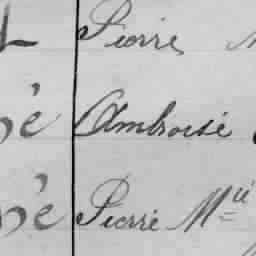 Pierre
né Ambroise
né Pierre Mie